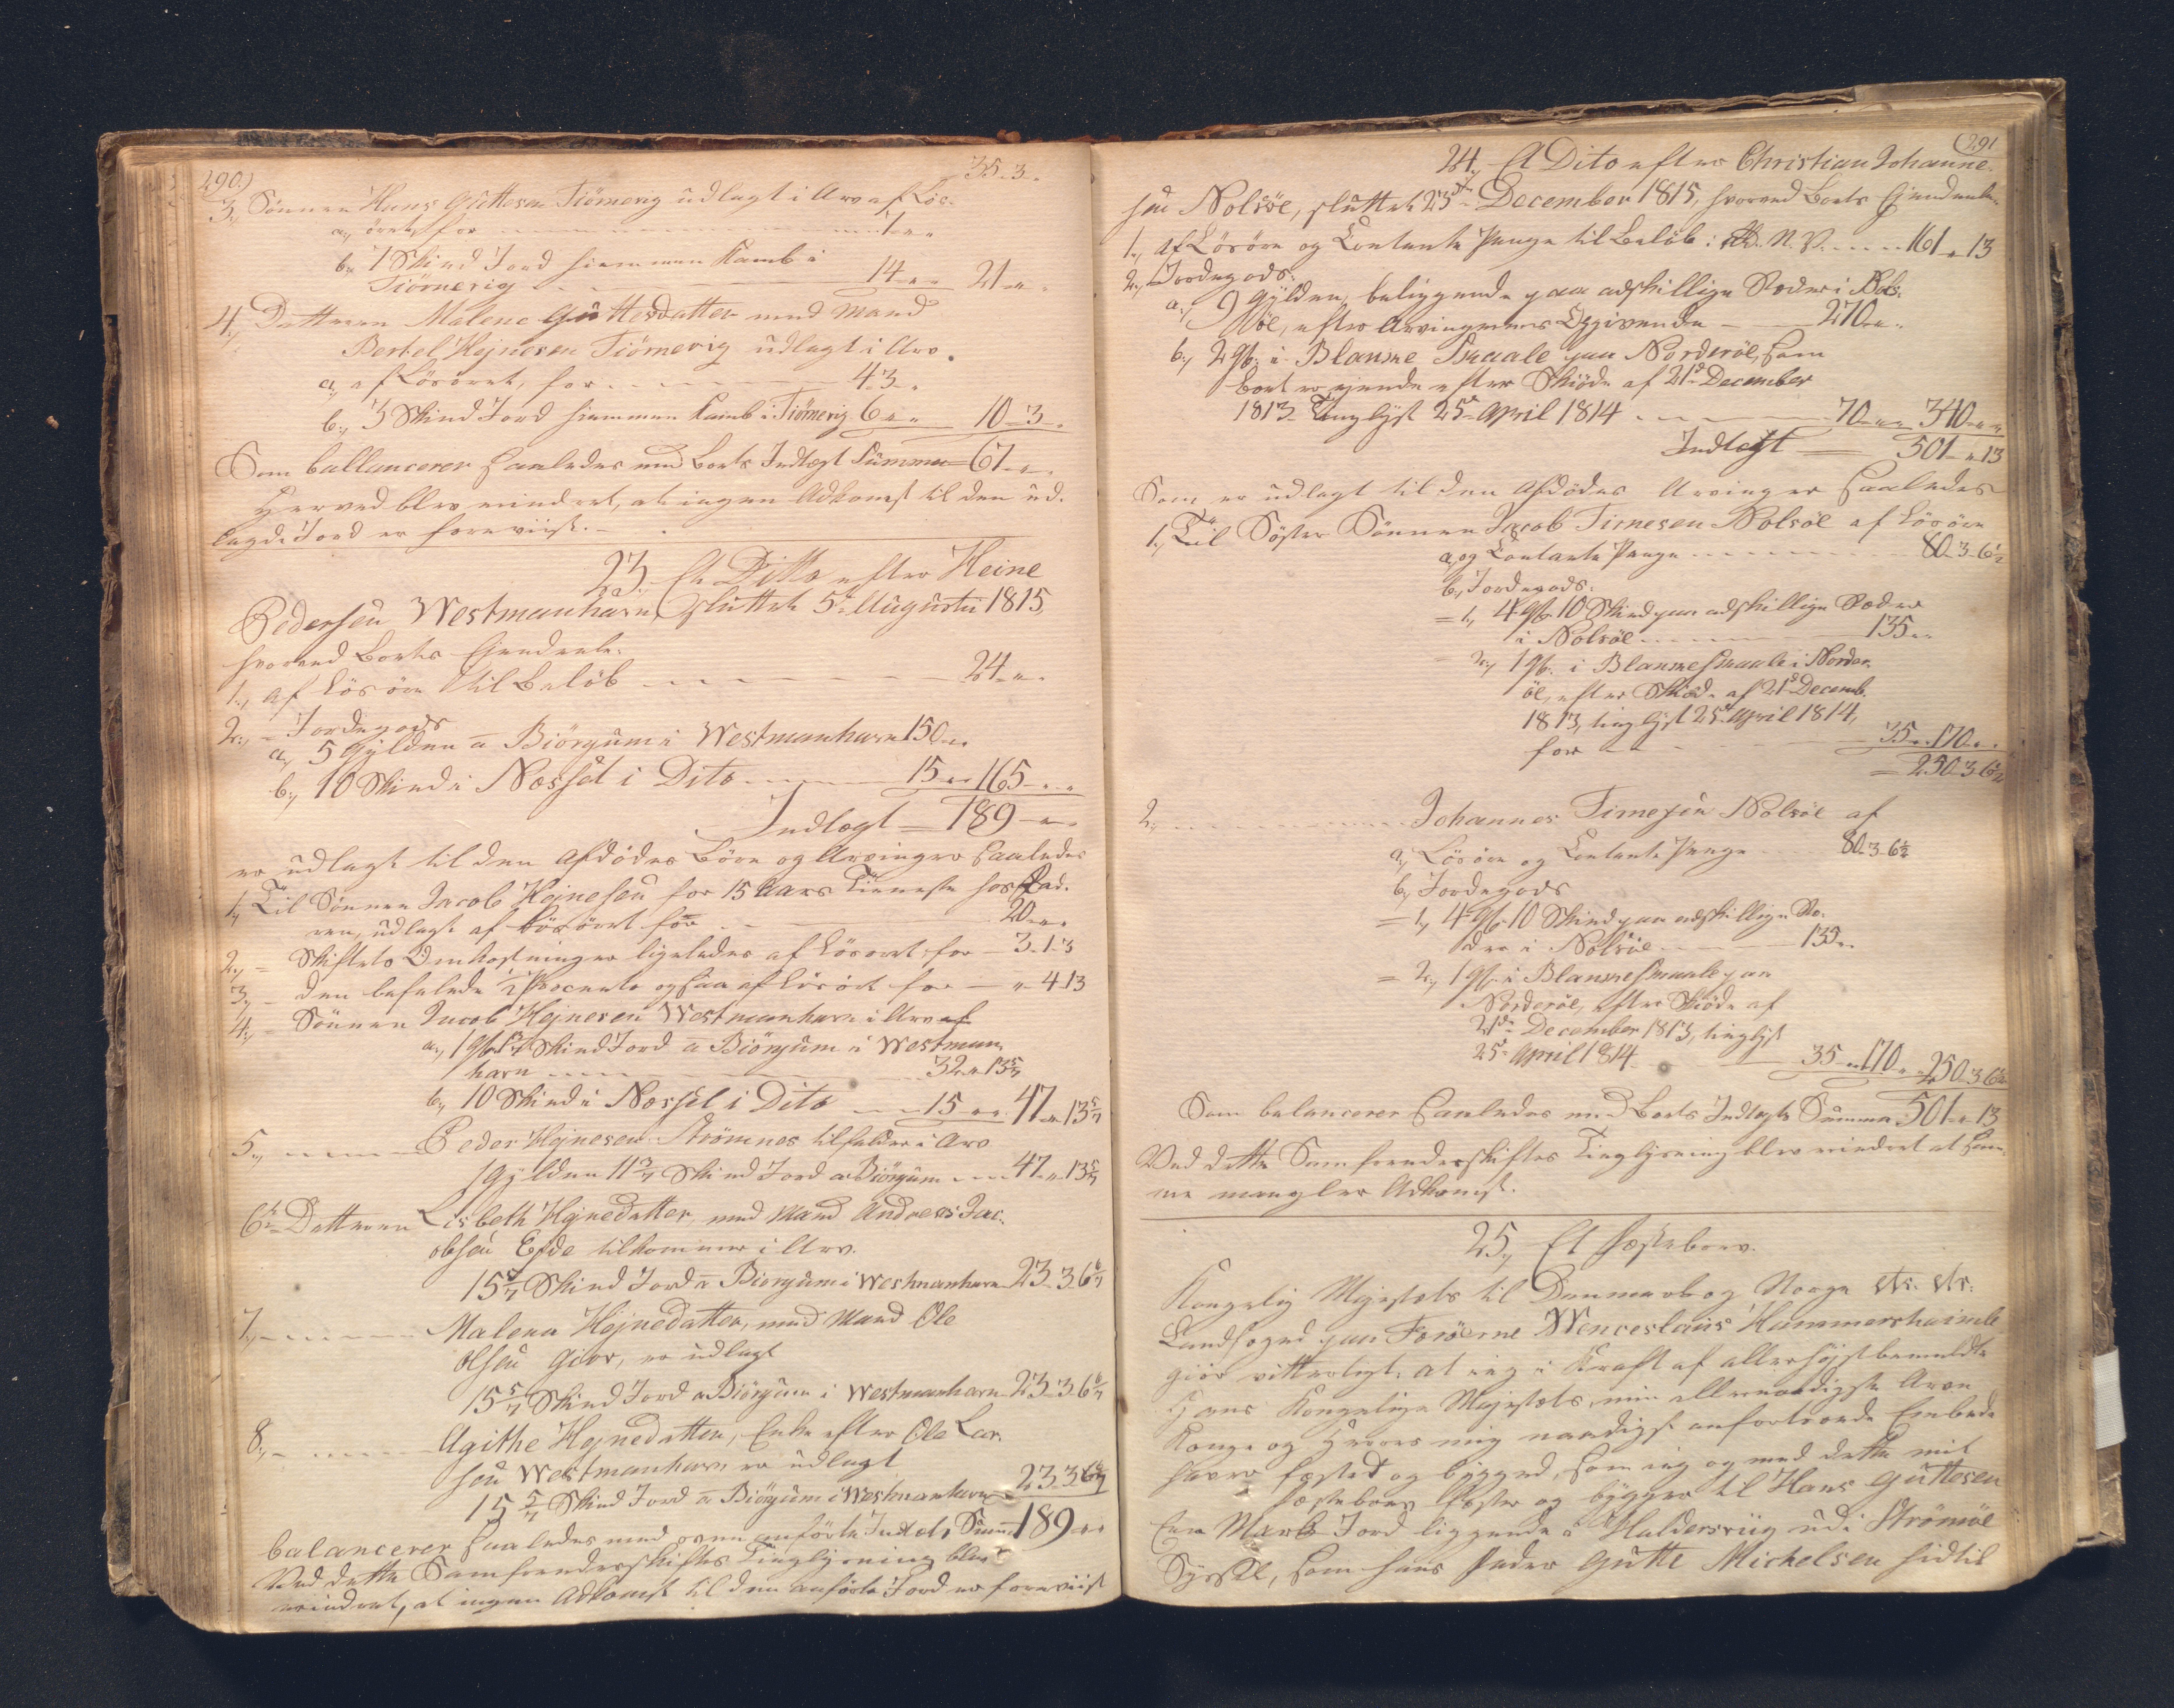 290.)
35 „ 3 „
3., Sønnen Hans Guttesen Tiörnevig udlagt i Arv af Løs-
a., øret, for - - - 7 „ „
b., 7 Skind Jord hiemmen Kamb i
Tiörnevig - - - 14 „ „ 21 „ „
4., Datteren Malene Guttesdatter med Mand
Bertel Hejnesen Tiörnevig udlagt i Arv
a., af Løsøret, for - - - 4 „ 3 „
b., 3 Skind Jord hiemmen Kamb i Tiörnevig 6 „ „ 10 „ 3 „
Som ballancerer saaledes med Boets Indtægt Summa 67 „ „
Herved blev erindret, at ingen Adkomst til den ud-
lagde Jord er foreviist. -
23., Et Ditto efter Heine
Pedersen Westmanhavn, sluttet 5te Augustii 1815,
hvorved Boets Eiendeele.
1., af Løsøre til Beløb - - - 24 „ „
2., - Jordegods
a., 5 Gylden a Biörgum i Westmanhavn 150 „ „
b., 10 Skind i Næssel i Dito - - - 15 „ „ 165 „ „
Indtægt - 189 „ „
er udlagt til den Afdødes Børn og Arvinger saaledes
1., Til Sønnen Jacob Hejnesen for 15 Aars Tieneste hos Fad-
ren, udlagt af Løsøret for - - - 20 „ „
2., - Skiftets Omkostninger ligeledes af Løsøret for - 3 „ 1 „ 3
3., - den befalede ½ Procento ogsaa af Løsøret for - „ 4 „ 13
4., - Sønnen Jacob Hejnesen Westmanhavn i Arv af
a., 1 Gl. 1 5/7 Skind Jord a Biörgum i Westman-
havn - - - 32 „ „ 13 5/7
b., 10 Skind i Næssel i Dito - - 15 „ „ 47 „ „ 13 5/7
5., - - - Peder Hejnesen Strömnes tilfalder i Arv
1 Gylden 11 3/7 Skind Jord a Biörgum - - 47 „ „ 13 5/7
6te - Datteren Lisbeth Hejnedatter, med Mand Andreas Jac-
obsen Eide tilkommer i Arv.
15 5/7 Skind Jord a Biörgum i Westmanhavn 23 „ 3 „ 6 6/7
7., - - - Malena Hejnedatter, med Mand Ole
Olsen Giov, er udlagt
15 5/7 Skind Jord a Biörgum i Westmanhavn 23 „ 3 „ 6 6/7
8., - - - Agithe Hejnedatter, Enke efter Ole Lar-
sen Westmanhavn er udlagt
15 5/7 Skind Jord a Biörgum i Westmanhavn 23 „ 3 „ 6 6/7
balancerer saaledes med oven anførte Indtægts Summa 189 „ „
Ved dette Samfrændeskiftes Tinglysning blev
erindret, at ingen Adkomst til den anførte Jord er foreviist
(291
24., Et Dito efter Christian Johanne-
sen Nolsöe, sluttet 23de December 1815, hvorved Boets Eiendeele
1., af Løsøre og Contante Penge til Beløb: Rd. N. V. - - 161 „ „ 13
2., Jordegods.
a., 9 Gylden, beliggende paa adskillige Steder i Nol-
söe, efter Arvingernes Opgivende - 270 „ „
b., 2 Gl. i Blanme Smaale paa Norderöe, som
Boet er eiende efter Skiøde af 21de December
1813 Tinglyst 25de April 1814 - - 70 „ „ 340 „ „
Indtægt - 501 „ „ 13
Som er udlagt til den Afdødes Arvinger saaledes
1., Til Søster Sønnen Jacob Timesen Nolsöe af Løsøre
a., og Contante Penge - - - 80 „ 3 „ 6½
b., Jordegods.
= 1., 4 Gl. 10 Skind paa adskillige Steder
i Nolsöe - - - 135 „ „
= 2., 1 Gl. i Blanme Smaale i Norder-
öe, efter Skiøde af 21de Decemb.
1813, tinglyst 25de April 1814,
for - - - 35 „ „ 170 „ „
= 250 „ 3 „ 6½
2., - - - Johannes Timesen Nolsöe af
a., Løsøre og Contante Penge - 80 „ 3 „ 6½
b., Jordegods
= 1., 4 Gl. 10 Skind paa adskillige Ste-
der i Nolsöe - - - 135 „ „
= 2., 1 Gl. i Blanme Smaale paa
Norderöe, efter Skiøde af
21de December 1813, tinglyst
25de April 1814 - 35 „ „ 170 „ „ 250 „ 3 „ 6½
Som balancerer saaledes med Boets Indtægts Summa 501 „ „ 13
Ved dette Samfrændeskiftes Tinglysning blev erindret at sam-
me mangler Adkomst.
25., Et Fæstebrev.
Kongelig Majestæts til Danmark og Norge etc. etc.
Landfoged paa Færöerne Wenceslaus Hammershaimb
giør vitterligt: at ieg i Kraft af allerhøjstbemeldte
Hans Kongelige Majestæts, min allernaadigste Arve
Konge og Herres mig naadigst anfortroede Embede
haver fæsted og bygged, som ieg og med dette mit
Fæstebrev fæster og bygger til Hans Guttesen
Een Mark Jord liggende i Haldersvüg udi Strömöe
Syssel, som hans Fader Gutte Michelsen hidtil